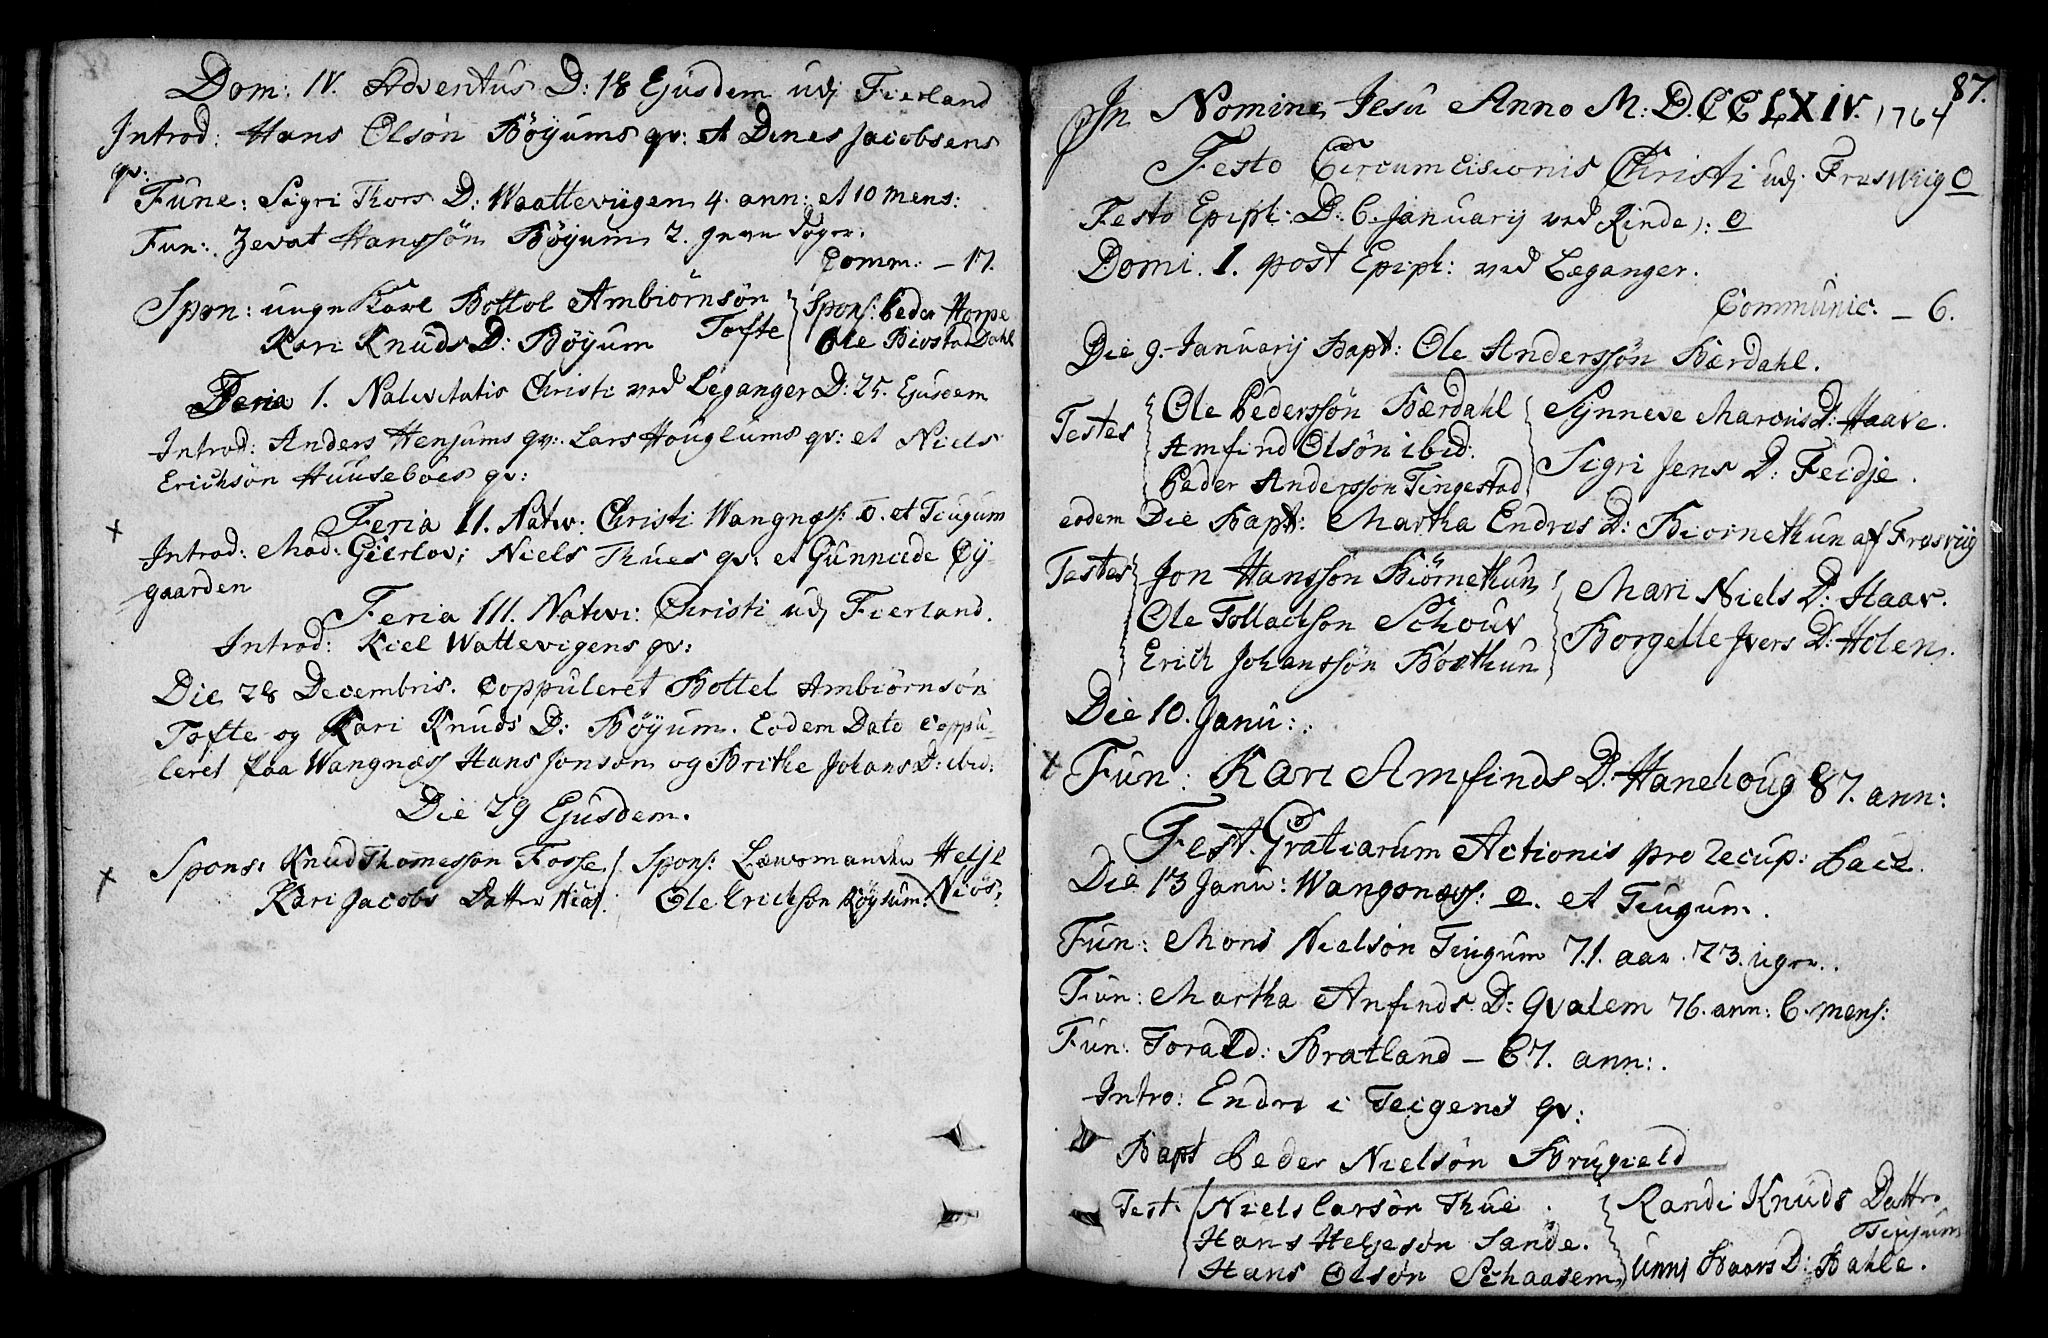 Dom: IV. Adventus D: 18 Ejusdem udj Fierland
Introd: Hans Olsøn Bøyums qv: et Dines Jacobsens
qv:
Fune: Sigri Thors D: Waatteviigen 4. ann: et 10 mens:
Fun: Zevat Hanssøn Bøyum 2. Dager.
Comm: – 17.
Spon: unge Karl Bottol Ambiørnsøn Tofte
Kari Knuds D: Bøyum
Spons: Peder Horpe
Ole Biostad Dahl
Feria 1. Nativitatis Christi ved Leganger D: 25. Ejusdem
Introd: Anders Henjums qv: Lars Houglums qv: et Niels
Erichsøn Huuseboes qv:
Feria II. Nativ: Christi Wangnæs: 0. et Tiugum
Introd: Mad: Gierløv; Niels Thues qv: et Gunnilde Øy-
gaarden
Feria III. Nativi: Christi udj Fierland.
Introd: Kiel Wattevigens qv:
Die 28 Decembris. Coppuleret Bottel Ambiørnsøn
Tofte og Kari Knuds D: Bøyum. Eodem Dato Coppu-
leret paa Wangnæss Hans Jonsøn og Brithe Johans D: ibid:
Die 29 Ejusdem.
Spons: Knud Thomessøn Fosse
Kari Jacobs Datter
Spons: Helje Niøs.
Ole Erichsøn
87.
In Nomine Jesu Anno M: D.CCLXIV. 1764
Festo Circumcisionis Christi udj Frøswiig 0
Festo Epiph: D: 6. Januarij ved Rinde: 0
Domi. 1. post Epiph: ved Leganger.
Communic. – 6.
Die 9. Januarij Bapt: Ole Anderssøn Bærdahl.
Testes
Ole Pederssøn Bærdahl
Amfind Olsøn ibid.
Peder Anderssøn Tingestad
Synneve Marcus D: Haave.
Sigri Jens D: Feidje.
eodem Die Bapt: Martha Endres D: Biornethun af Frøsviig
Testes
Jon Hanssøn Biørnethun
Ole Tollachsøn Schouv
Erich Johanssøn Borthun
Mari Niels D: Haav.
Borgelle Jvers D: Holen.
Die 10. Janu:
Fun: Kari Amfinds D: Hanehoug 87. ann:
Fest. Gratiarum Actionis pro recup: Pace.
Die 13 Janu: Wangsnæss: 0. et Tiugum.
Fun: Mons Nielsøn Tiugum 71. aar. 23. uger.
Fun: Martha Anfinds D: Qvalem 76. ann: 6. mens:
Fun: Torald: Bratland – 67. ann:
Intro: Endre i Teigens qv:
Bapt Peder Nielsøn Brugield
Test.
Niels Larsøn Thue.
Hans Heljesøn Sande.
Hans Olsøn Schaasem
Randi Knuds Dattr.
Tiugum
Unni Baars D: Bahle.